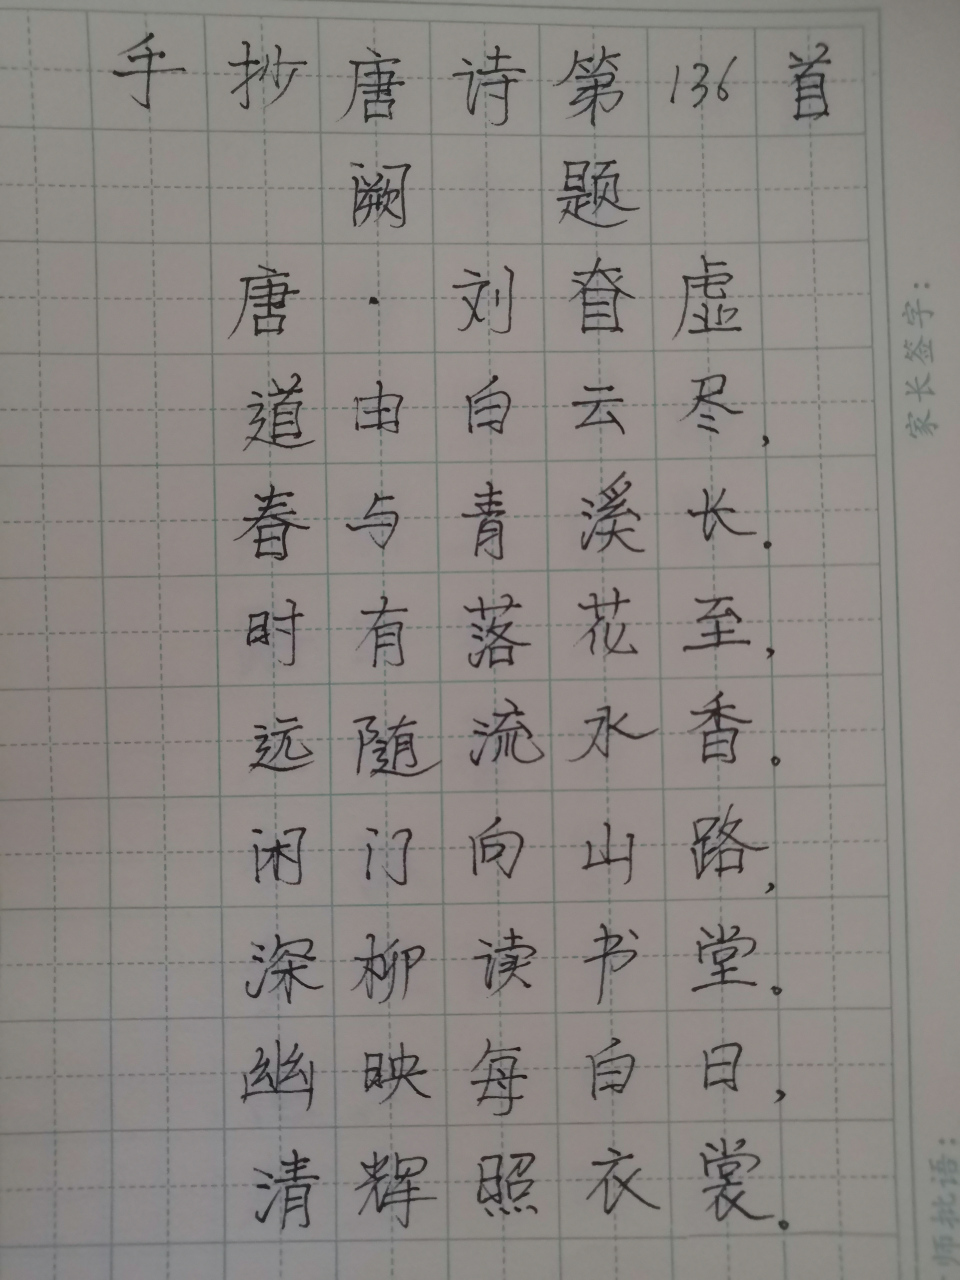 手抄唐诗第136首
阙题
唐·刘眘虚
道由白云尽,
春与青溪长.
时有落花至,
远随流水香。
闲门向山路,
深柳读书堂。
幽映每白日,
清辉照衣裳。
家长签字:
师批语: